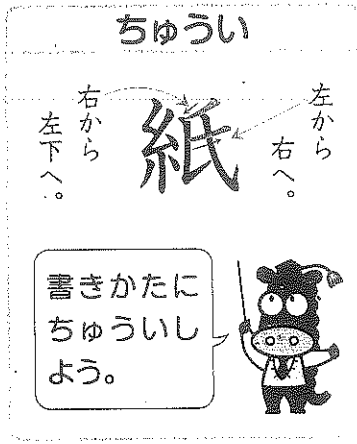 ちゅうい
左から
右へ。
紙
右から
左下へ。
書きかたに
ちゅういし
よう。